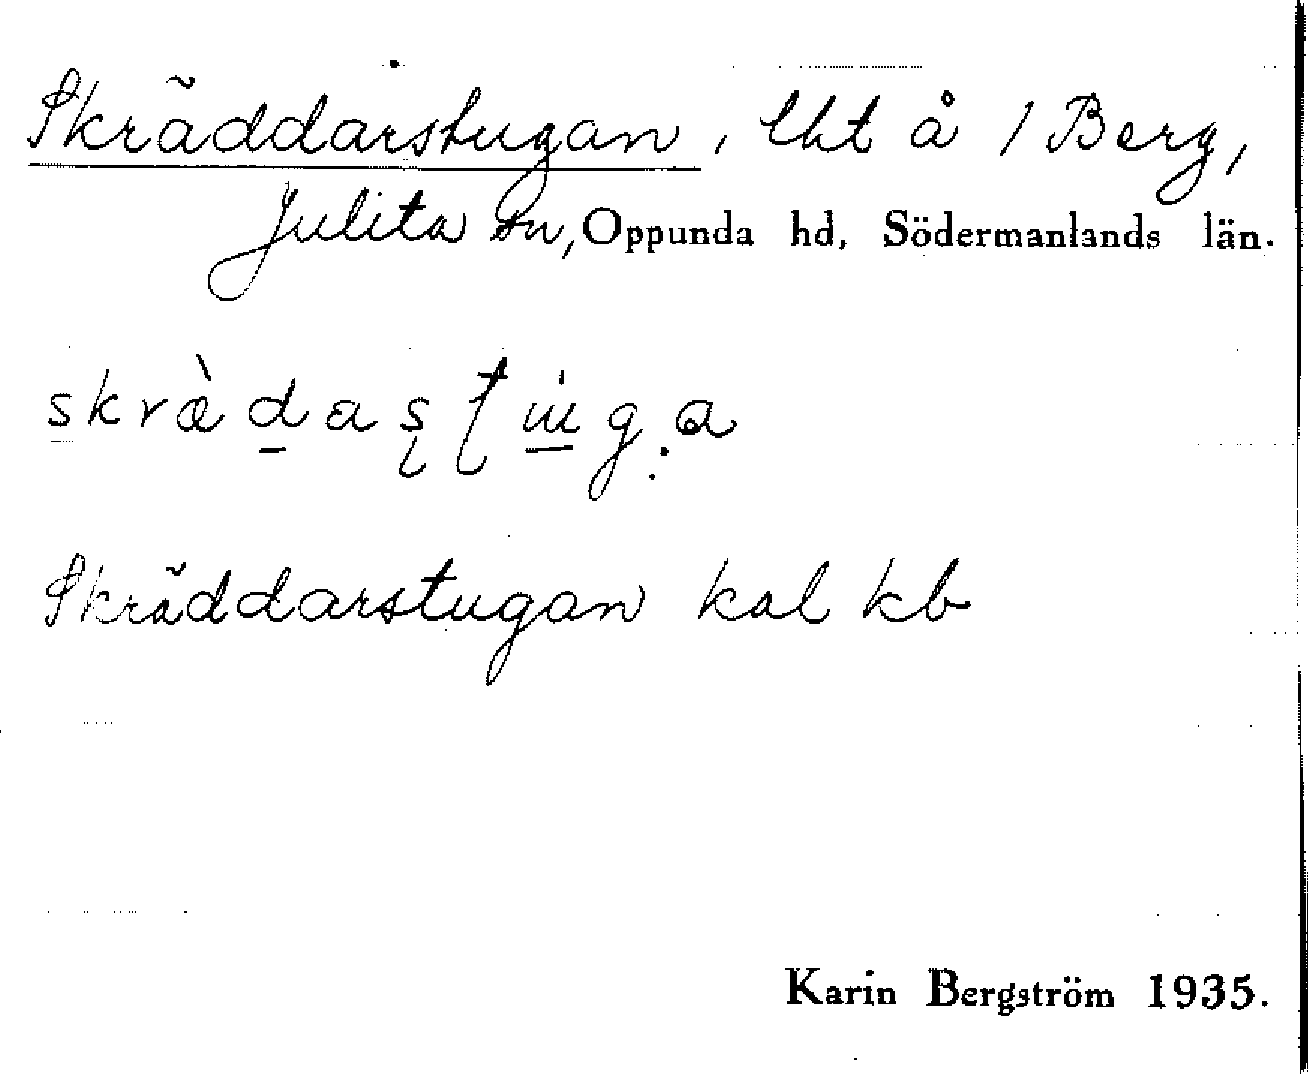 Skräddarstugan, lht å / Berg,
Julita sn, Oppunda hd, Södermanlands län.
skræ̀daʂʈɯga
Skräddarstugan kal kb
Karin Bergström 1935.